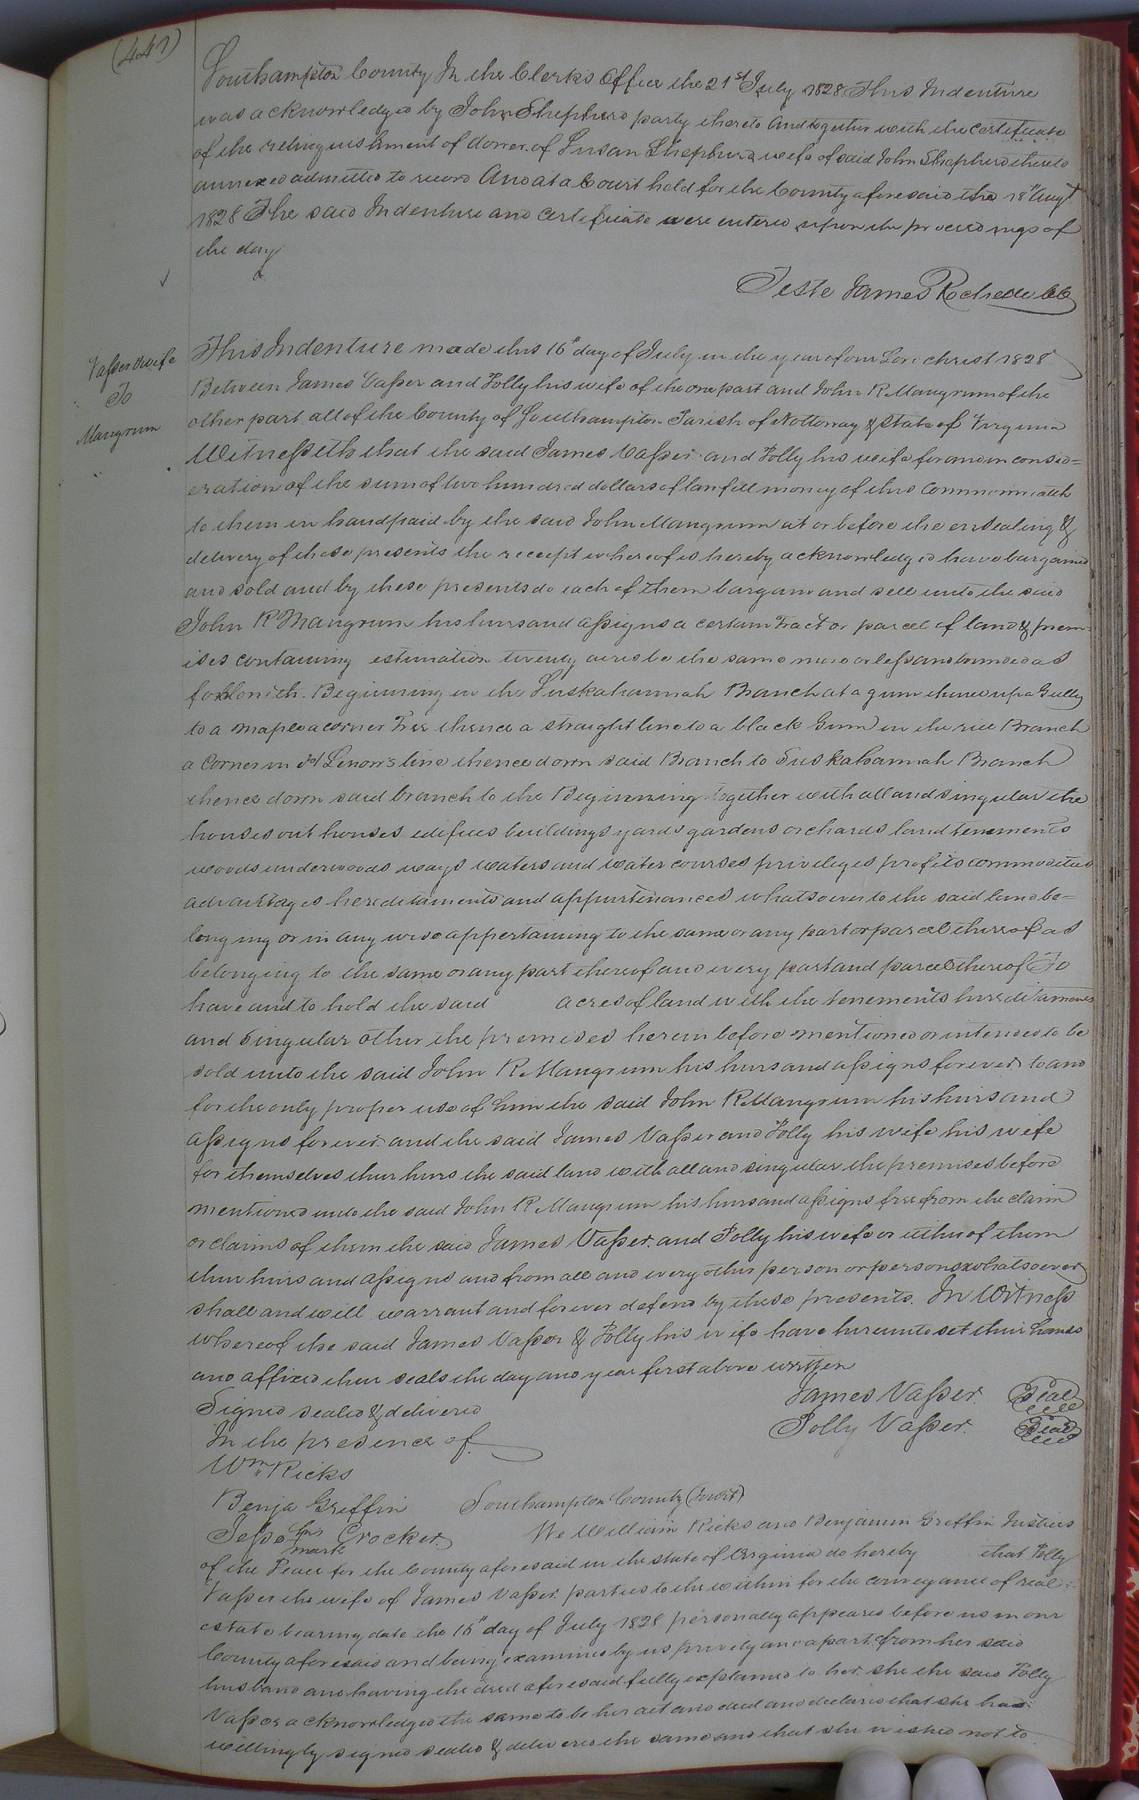 (447)
Southampton County In the Clerks Office the 21st July 1828 This Indenture
was acknowledged by John Shepherd party thereto And together with the certificate
of the relinquishment of dower of Susan Shepherd wife of said John Shepherd thereto
annexed admitted to record And at a Court held for the County aforesaid the 18th Augt
1828 The said Indenture and certificate were entered upon the proceedings of
the day
Teste James Rochelle CC
Vasser & wife
To
Mangrum
This Indenture made this 16th day of July in the year of our Lord christ 1828
Between James Vasser and Polly his wife of the one part and John R Mangrum of the
other part all of the County of Southampton Parish of Nottoway & state of Virginia
Witnesseth that the said James Vasser and Polly his wife for and in consid=
eration of the sum of two hundred dollars of lawfull money of this commonwealth
to them in hand paid by the said John Mangrum at or before the ensealing &
delivery of these presents the receept whereof is hereby acknowledged have bargained
and sold and by these presents do each of them bargain and sell unto the said
John R Mangrum his heirs and assigns a certain Tract or parcel of land & prem-
ises containing estimation twenty acres be the same more or less and bounded as
followith. Beginning in the Suskahannah Branch at a gum thence up a Gully
to a maple a corner Tree thence a straight line to a black Gum in the rice Branch
a Corner in Lenow's line thence down said Branch to Suskahannah Branch
thence down said branch to the Beginning together with all and singular the
houses out houses edifices buildings yards gardens orchards land tenements
woods underwoods ways waters and water courses privileges profits commodities
advantages hereditaments and appurtenances whatsoever to the said land be=
longing or in any wise appertaining to the same or any part or parcel thereof as
belonging to the same or any part thereof and every part and parcel thereof To
have and to hold the said acres of land with the tenements hereditaments
and singular other the premises herein before mentioned or intended to be
sold unto the said John R Mangrum his heirs and assigns forever to and
for the only proper use of him the said John R Mangrum his heirs and
assigns forever and the said James Vasser and Polly his wife his wife
for themselves their heirs the said land with all and singular the premises before
mentioned unto the said John R Mangrum his heirs and assigns free from the claim
or claims of them the said James Vasser and Polly his wife or either of them
their heirs and assigns and from all and every other person or persons whatsoever
shall and will warrant and forever defend by these presents. In Witness
whereof the said James Vasser & Polly his wife have hereunto set their hands
and affixed their seals the day and year first above written
James Vasser Seal
Polly Vasser Seal
Signed sealed & delivered
In the presence of
Wm Ricks
Benja Griffin
Jesse his mark Crocker
Southampton County (towit)
We William Ricks and Benjamin Griffin Justices
of the Peace for the County aforesaid in the state of Virginia do hereby that Polly
Vasser the wife of James Vasser parties to the within for the conveyance of real
estate bearing date the 16th day of July 1828 personally appeared before us in our
County aforesaid and being examined by us privily and apart from her said
husband and having the deed aforesaid fully explained to her she the said Polly
Vasser acknowledged the same to be her act and deed and declared that she had
willingly signed sealed & delivered the same and that she wished not to